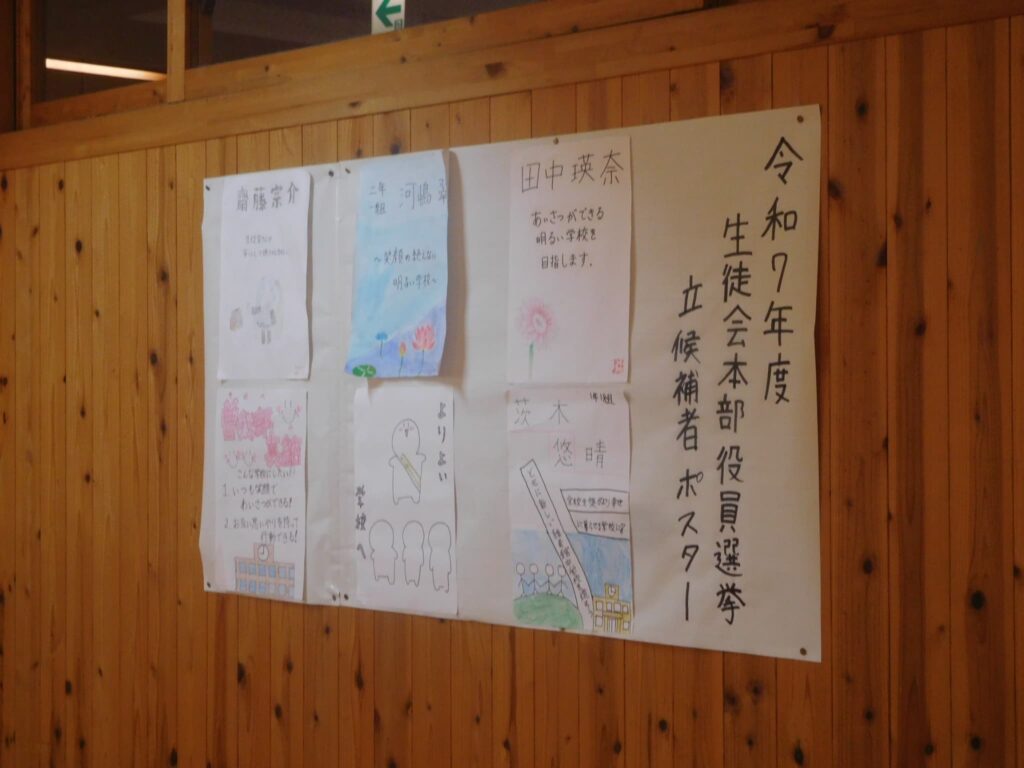 令和7年度
生徒会本部役員選挙
立候補者ポスター
田中瑛奈
あいさつができる
明るい学校を
目指します。
二年
一組
河嶋翠
〜笑顔の絶えない
明るい学校へ
齋藤宗介
茨木
悠晴
よりよい
学校へ
こんな学校にしたい!
1. いつも笑顔で
あいさつができる!
2. お互い思いやりを持って
行動できる!